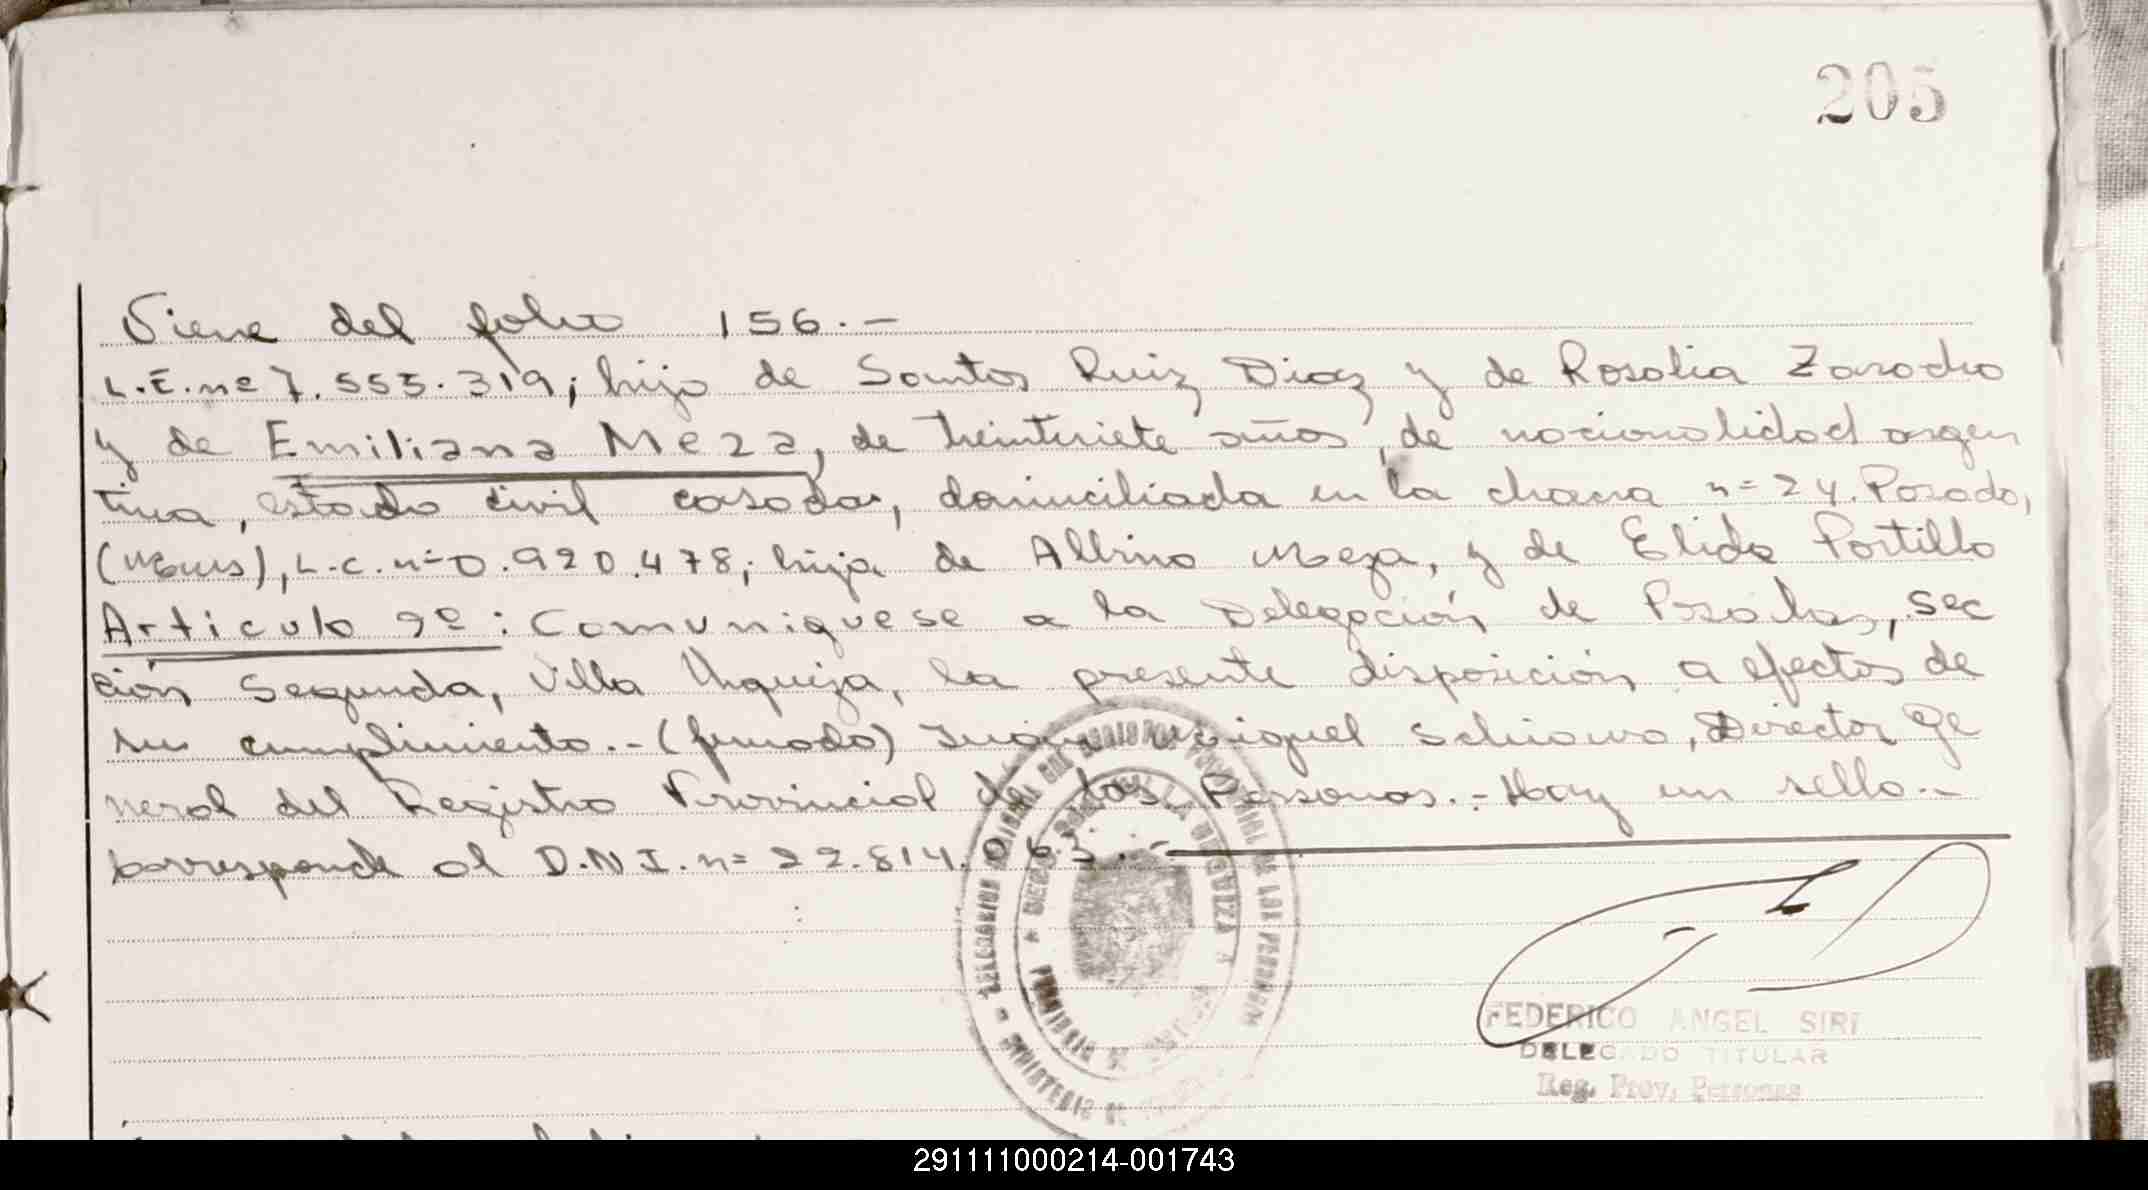 205
Viene del folio 156.-
L.E. nº 7.555.319; hijo de Santos Ruiz Diaz y de Rosalia Zaracho
y de Emiliana Meza, de treintisiete años, de nacionalidad argen
tina, estado civil casada, domiciliada en la chacra n=24. Posadas,
(Mnes), L.C. nº 0.920.478; hija de Albino Meza, y de Elida Portillo
Articulo 2º: Comuniquese a la Delegación de Posadas, Sec
ción Segunda, Villa Urquiza, la presente disposición a efectos de
su cumplimiento.-(firmado) Juan Miguel Schiavo, Director Ge
neral del Registro Provincial de las Personas.- Hay un sello.-
Corresponde al D.N.I. n= 22.814.063.-
FEDERICO ANGEL SIRI
DELEGADO TITULAR
Reg. Prov. Personas
291111000214-001743